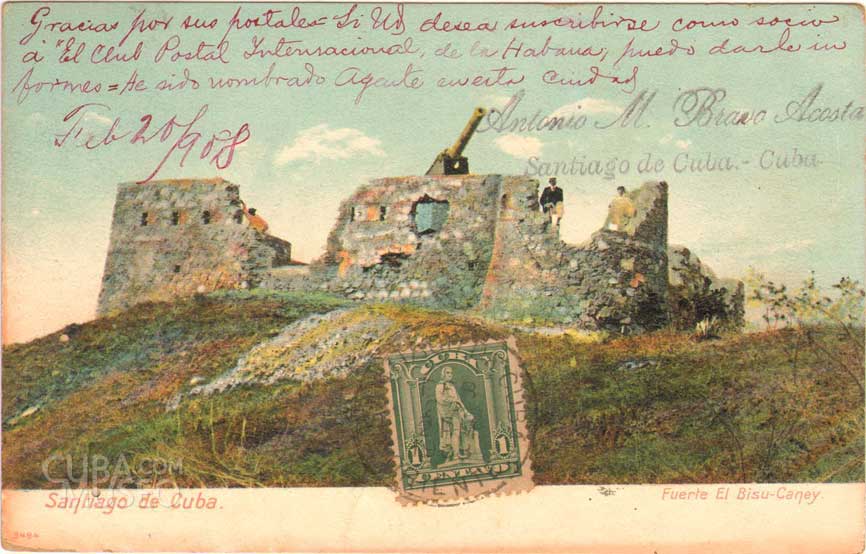 Gracias por sus postales = Si Ud desea suscribirse como socio
á "El Club Postal Internacional, de la Habana, puedo darle in
formes = He sido nombrado Agente en esta Ciudad
Feb 20/908
Antonio M. Bravo Acosta
Santiago de Cuba.- Cuba.
CUBA
1 1
CENTAVO
CUBA.COM
MUSEO
Santiago de Cuba.
Fuerte El Bisu-Caney.